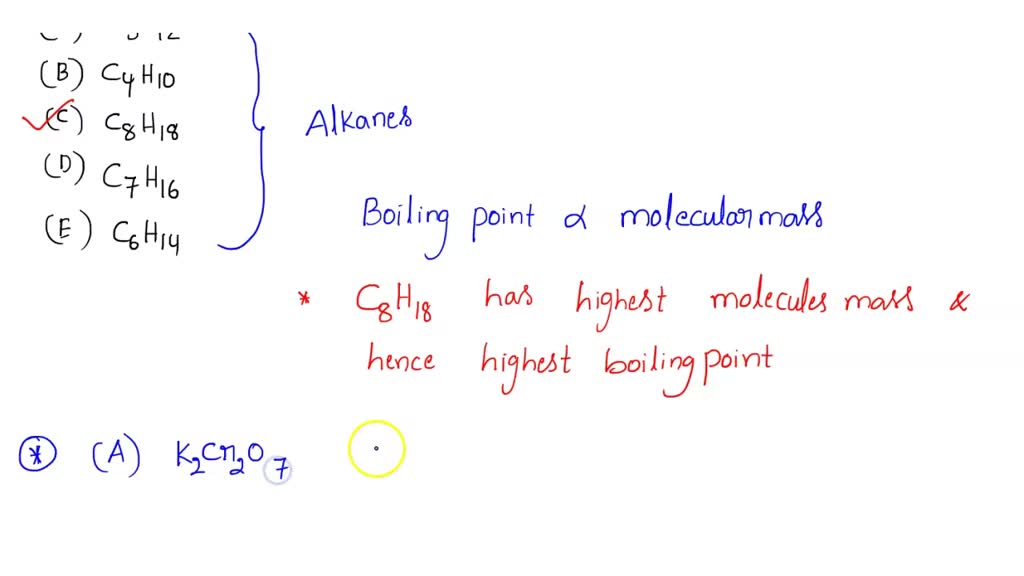 (B) C₄H₁₀
(C) C₈H₁₈
(D) C₇H₁₆
(E) C₆H₁₄
Alkanes
Boiling point α molecular mass
* C₈H₁₈ has highest molecules mass &
hence highest boiling point
* (A) K₂Cr₂O₇